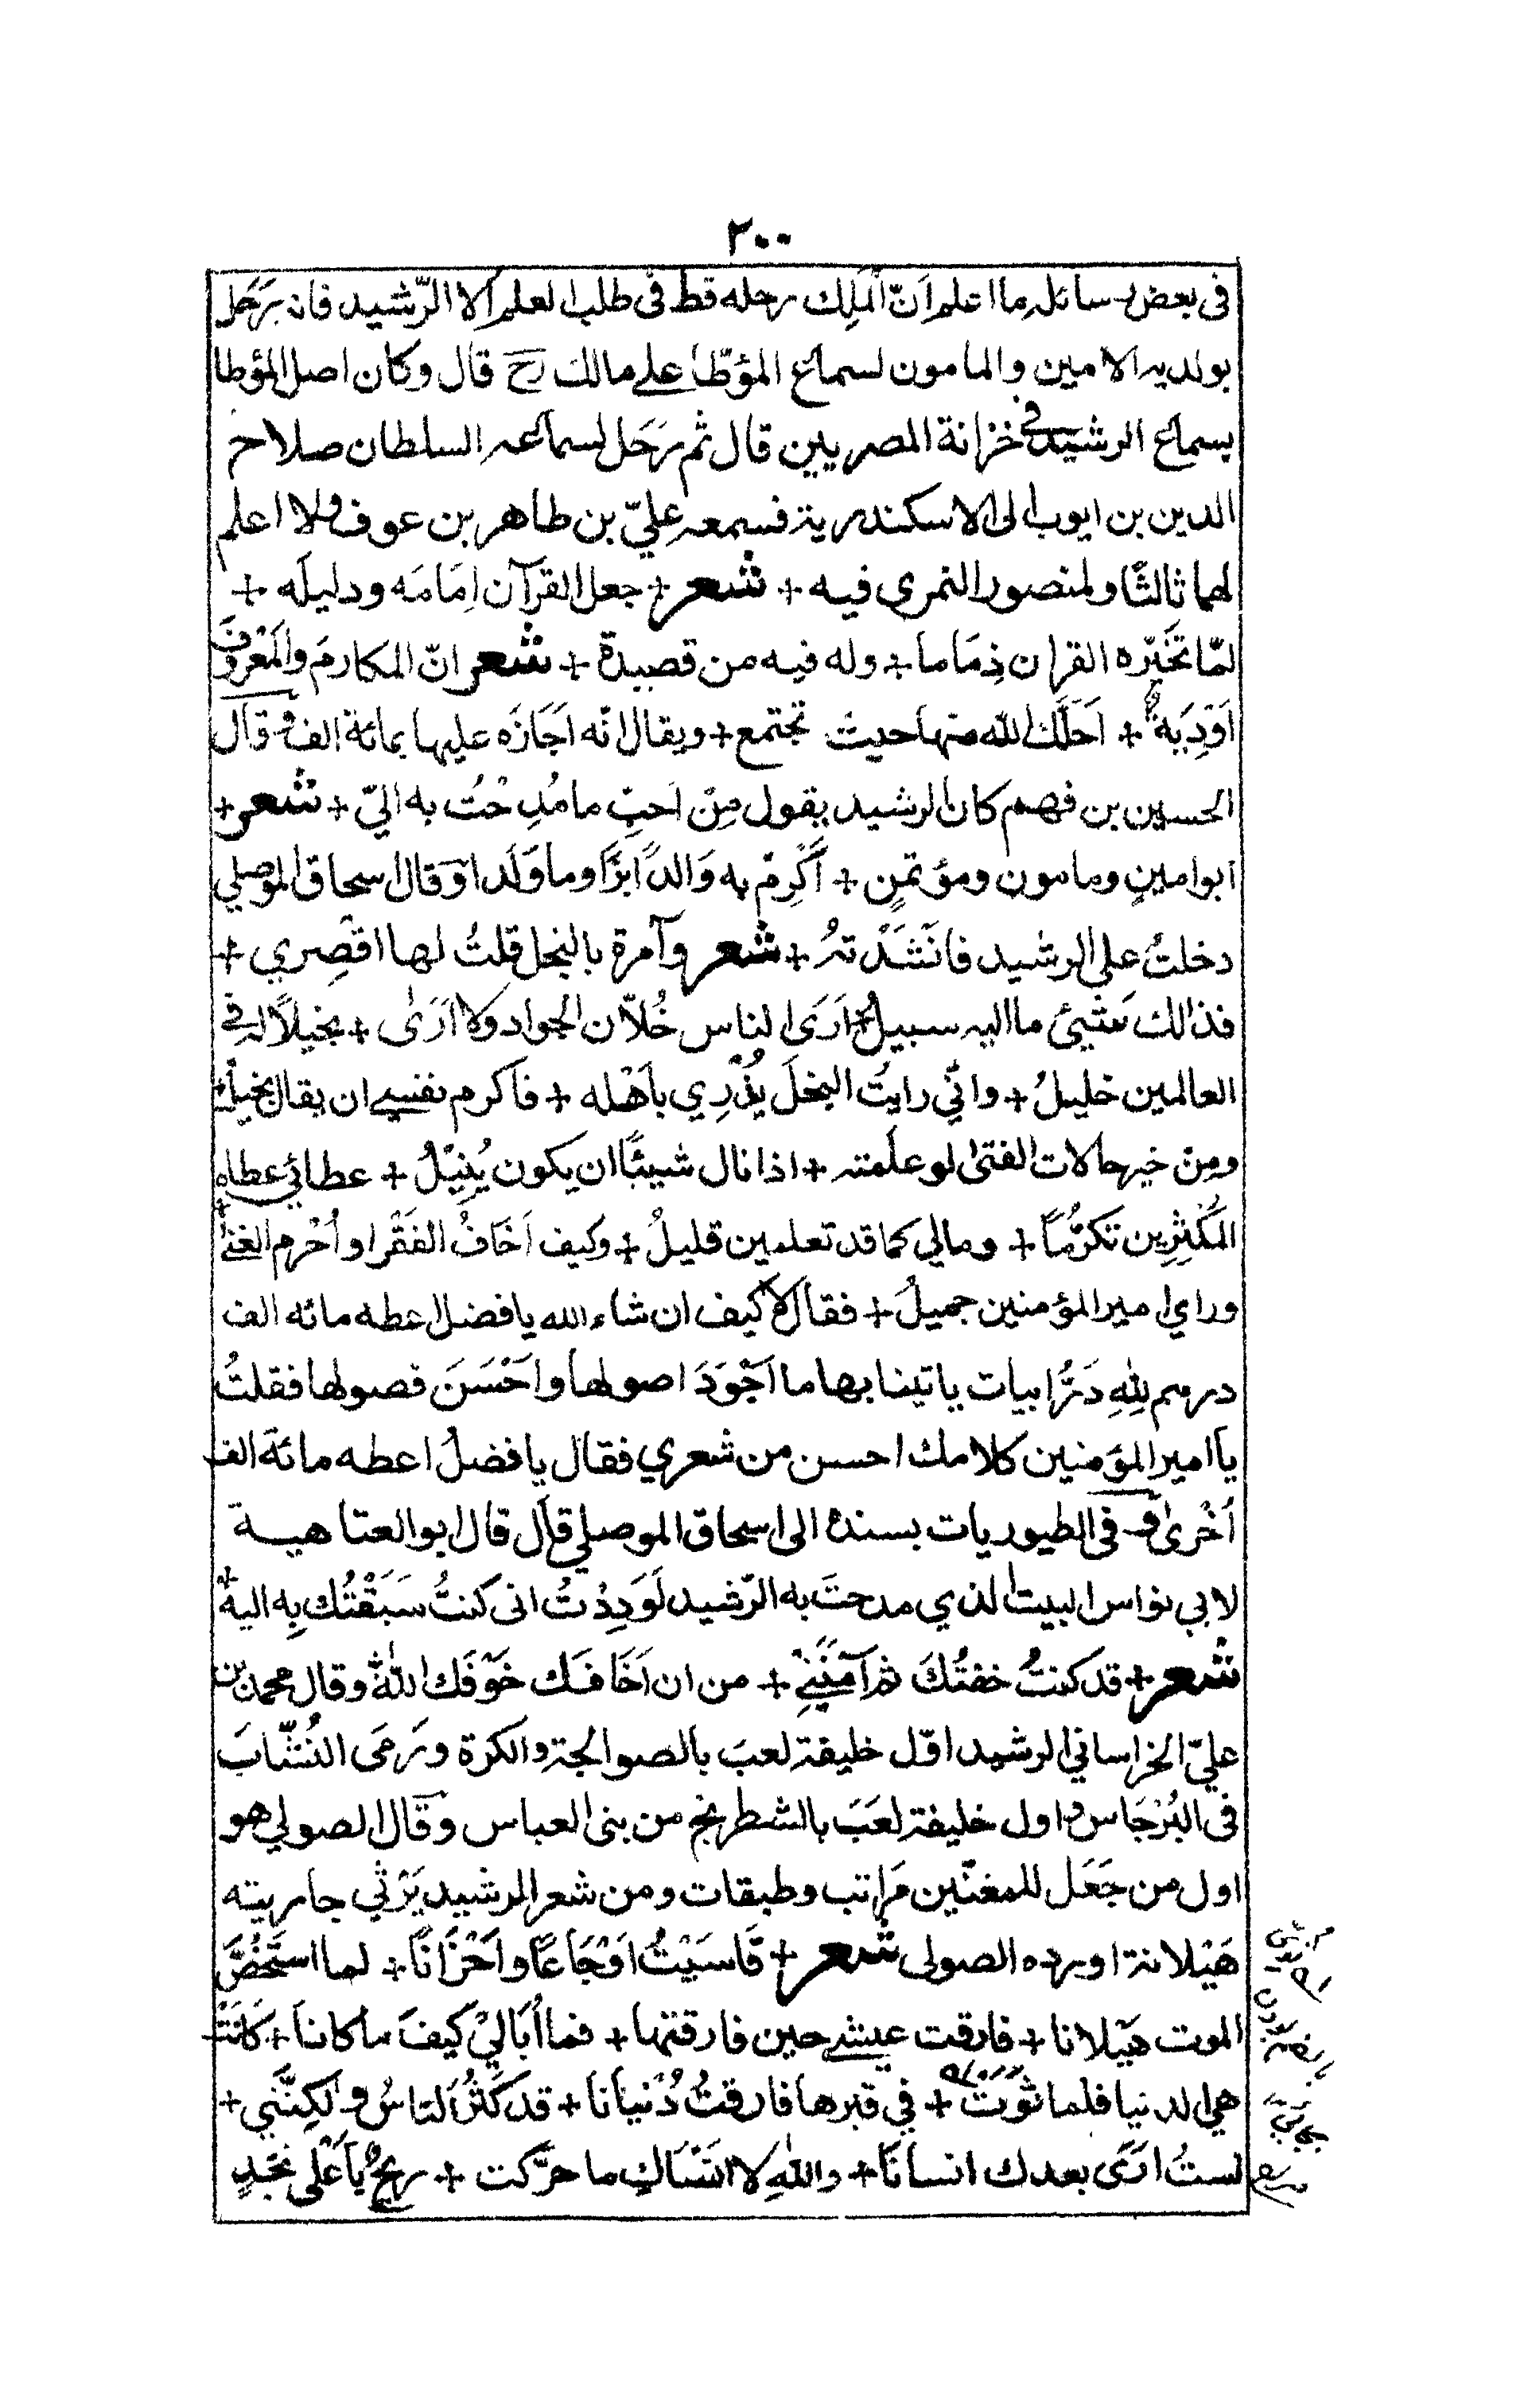 ٢٠٠
فى بعض رسائله ما اعلم اَنّ الْمَلِك رحله قط فى طلب العلم اِلا الرّشيد فانه رَحَل
بولديه الامين والمامون لسماع المؤطّا على مالك رح قال وكان اصل المؤطا
بسماع الرشيد فى خزانة المصريين قال ثم رَحَل لسماعه السلطان صلاح
الدين بن ايوب الى الاسكندرية فسمعه عليّ بن طاهر بن عوف ولا اعلم
لهما ثالثًا ولمنصور النمرى فيه + شعر + جعل القرآن اِمَامَه ودليلَه +
لمّا تخَيّره القران ذِمَاما + وله فيه من قصيدة + شعر انّ المكارمَ والْمَعْروفَ
اَوْدِيَة + اَحَلَّك الله منها حيث تجتمع + ويقال انّه اَجَازَه عليها بمائة الف وقال
الحسين بن فهم كان الرشيد يقول مِنْ اَحبّ ما مُدِحْتُ به اليّ + شعر +
ابو امينٍ ومامون ومؤتمنٍ + اَكْرِمْ به وَالدًا بَرًّا وما وَلَدا وقال اسحاق الموصلي
دخلتُ على الرشيد فانَشَدْتهُ + شعر وآمرة بالبخل قلتُ لها اقْصِري +
فذالك شيئ ما اليه سبيلُ + اَرَى الناس خُلاّن الجواد ولا اَرَى + بخيلاً له فى
العالمين خليلُ + وانّي رايتُ البخلَ يُزْرِي باَهْله + فاكرم نفسي ان يقال بخيل
ومِنْ خير حالات الفتى لو علمته + اذا نال شيئًا ان يكون يُنِيْلُ + عطائي عطاء
المُكْثِرِين تكرُّمًا + ومالي كما قد تعلمين قليلُ + وكيف اَخَافُ الفَقْر او اُحْرم الغنى
وراي امير المؤمنين جميلُ + فقال لا كيف ان شاء الله يا فضل اعطه مائه الف
درهم لِلّٰهِ دَرُّ ابيات ياتينا بها ما اَجْوَدَ اصولها واَحْسَنَ فصولها فقلتُ
يا امير المؤمنين كلامك احسن من شعري فقال يا فضلُ اعطه مائة الف
اُخْرىٰ و فى الطيوريات بسنده الى اسحاق الموصلي قال قال ابو العتاهية
لابي نواس البيت الذي مدحتَ به الرّشيد لَوَدِدْتُ انى كنتُ سَبَقْتُك بِه اليه +
شعر + قد كنتُ خفتُكَ ثم آمَنَنِيْ + من ان اَخَافَك خَوْفَك اللهَ وقال محمد بن
عليّ الخراساني الرشيد اوّل خليفة لعبَ بالصوالجة والكرة ورَمَى النُشّابَ
فى البُرْجَاس واول خليفة لعَبَ بالشطرنج من بنى العباس وقال الصولي هو
اول من جَعَل للمغنّين مَراتب وطبقات ومن شعر الرشيد يَرْثي جاريته
هَيْلانة اورده الصولى شعر + قَاسَيْتُ اَوْجَاعًا واَحْزَانًا + لما استَخَصَّ
الموت هَيْلانا + فارقت عيشي حين فارقتها + فما اُبَالِيْ كيفَ ما كانا + كَانَتْ
هي الدنيا فلما ثَوَتْ + في قبرها فارقتُ دُنيانا + قد كَثُرَ الناسُ ولٰكِنَّنِي +
لستُ ارَى بعدك انسانًا + واللهِ لا اَنْسَاكِ ما حرَّكت + ريحٌ يا اَعْلى نَجْدٍ